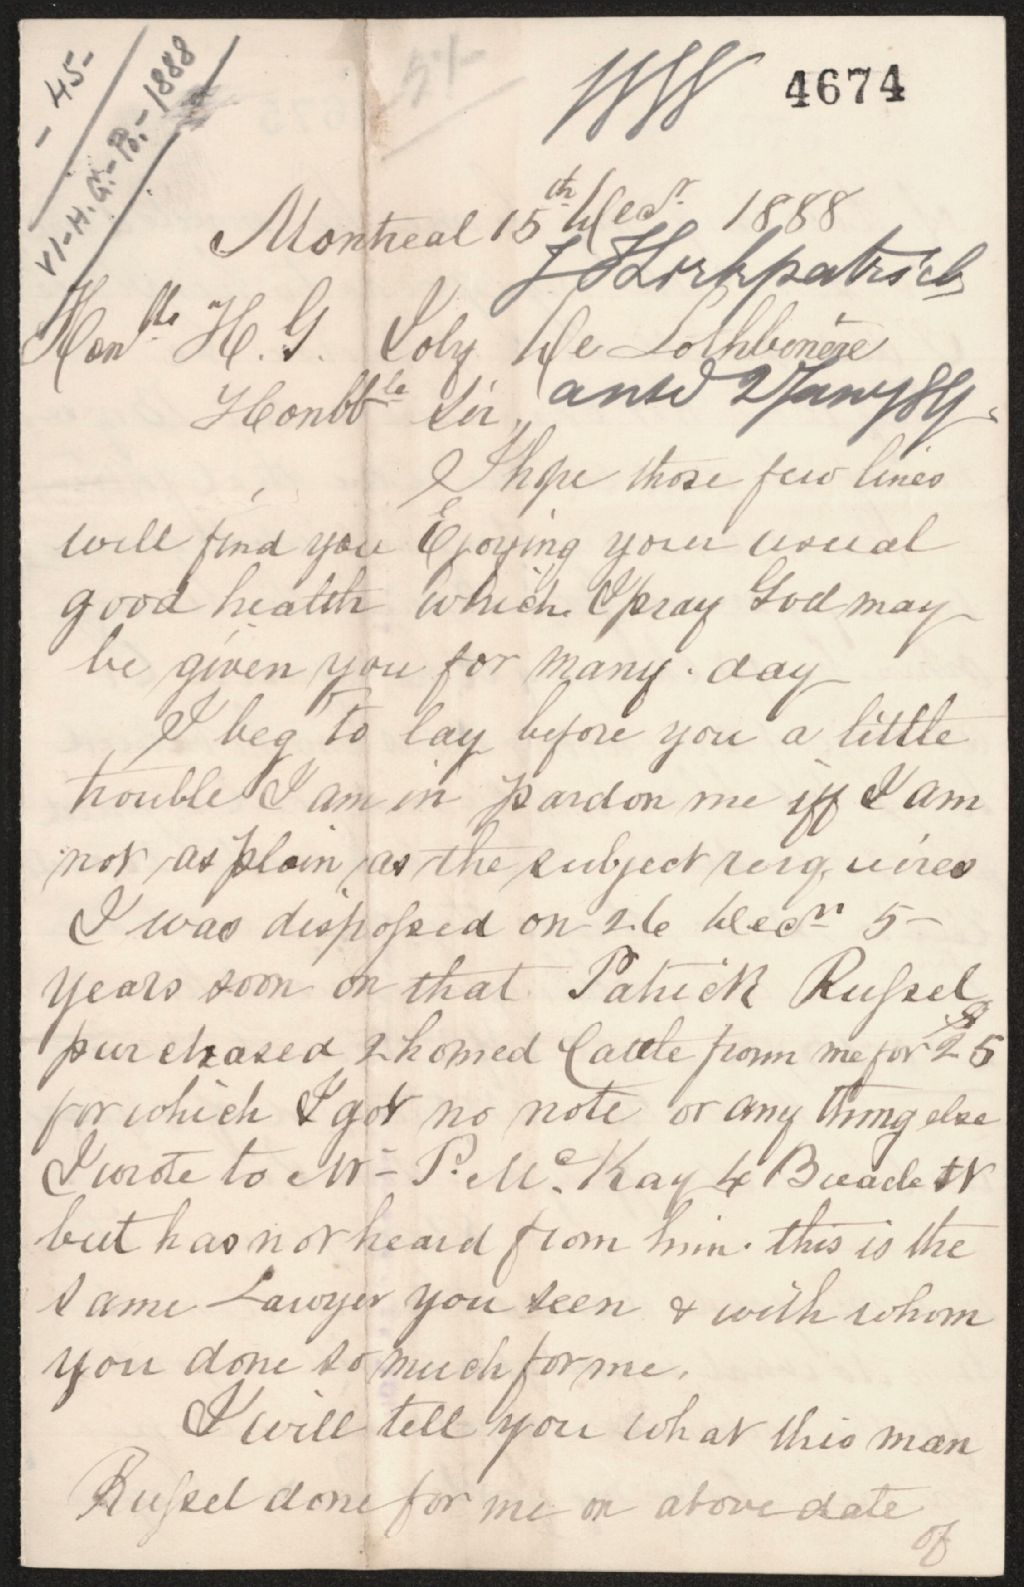 - 45 -
VI-H.G.-Po.- 1888
51-
4674
Montreal 15th Decr 1888
J Kirkpatrick
Honble H. G. Joly De Lothbinère
answd 2 Jany 89
Honbble Sir,
I hope those few lines
will find you Ejoying your usual
good health which I pray God may
be given you for many day
I beg to lay before you a little
trouble I am in pardon me if I am
not as plain as the subject reiquires
I was dispossed on 26 Decr 5-
years soon on that Patrick Russel
purchased 2 horned Cattle from me for $25
for which I got no note or any thing else
I wrote to Mr P. McKay 4 Buade St
but has not heard from him. this is the
same Lawyer you seen & with whom
you done so much for me.
I will tell you what this man
Russel done for me on above date
of